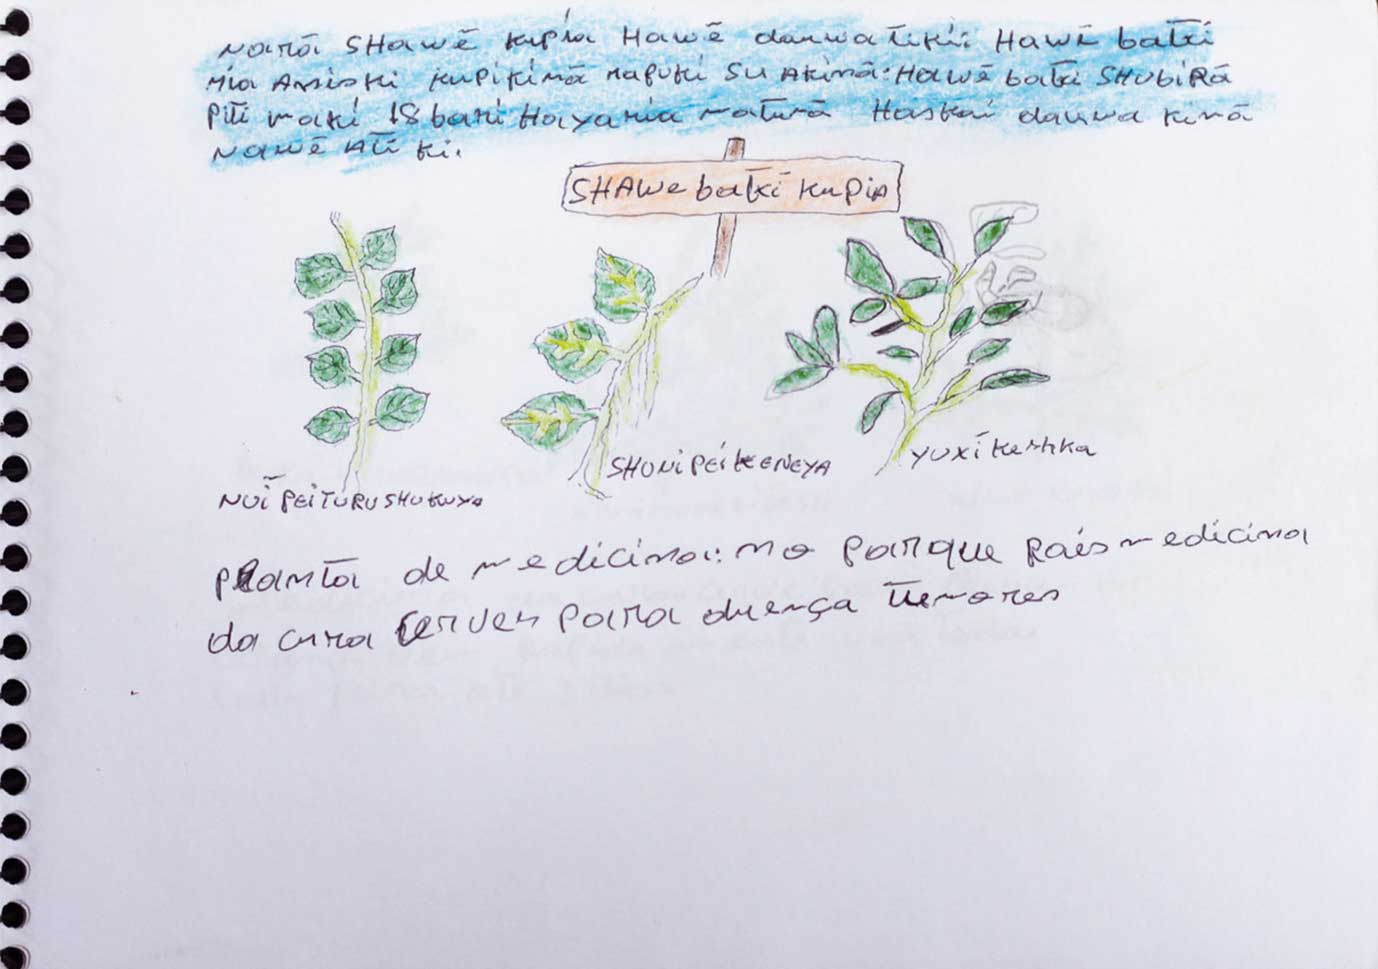 Narã SHawẽ kupĩa Hawẽ dauwa tikii Hawẽ batxi
Mia Aniski kupikinã napuki Su Akinã: Hawẽ batxi SHubiRã
Piti maki 18 bari Hayania natunã Haskai dauwa kinã
Nawẽ Ati ki.
SHAWe batxi kupiA
NUĨ PEI TURU SHUKUYA
SHUNI PEI KENEYA
YUXĨ KESHKA
PLanta de medicina: no parque Rais medicina
da cura Cerver Para duença Tumores